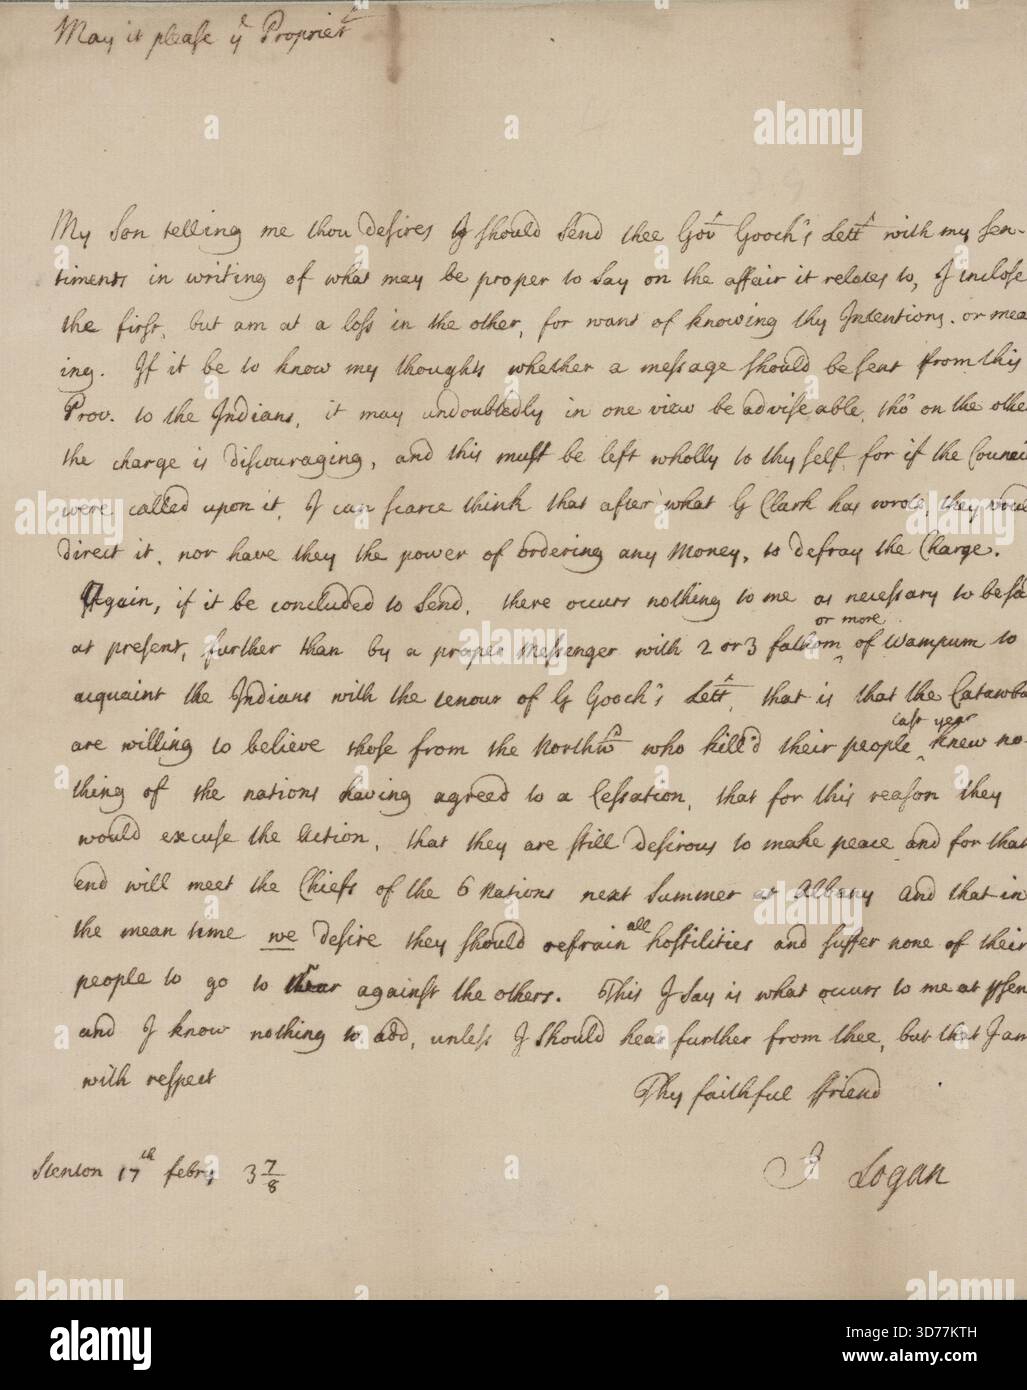 May it please yᵉ Proprietʳ
My Son telling me thou desires I should Send thee Govʳ Gooch's Lettʳ with my sen-
timents in writing of what may be proper to say on the affair it relates to, I inclose
the first, but am at a loss in the other, for want of knowing thy Intentions. or mea
ing. If it be to know my thoughts whether a message should be sent from this
Prov. to the Indians, it may undoubtedly in one view be adviseable, tho' on the othe
the charge is discouraging, and this must be left wholly to thy self, for if the Counci
were called upon it, I can scarce think that after what G Clark has wrote, they would
direct it, nor have they the power of ordering any Money, to defray the Charge.
Again, if it be concluded to Send, there occurs nothing to me as necessary to be sa
at present, further than by a proper Messenger with 2 or 3 fathom or more of Wampum to
acquaint the Indians with the tenour of G Gooch's Lettʳ, that is that the Catawba
are willing to believe those from the Northwᵈ who kill'd their people last year knew no-
thing of the nations having agreed to a Cessation, that for this reason they
would excuse the Action, that they are still desirous to make peace and for that
end will meet the Chiefs of the 6 Nations next Summer at Albany and that in
the mean time we desire they should refrain all hostilities and suffer none of their
people to go to War against the others. This I say is what occurs to me at pʳsen
and I know nothing to add, unless I should hear further from thee, but that I am
with respect
Thy faithful ffriend
Stenton 17ᵗʰ febry 3 7/8
J Logan
alamy
Image ID: 3D77KTH
www.alamy.com